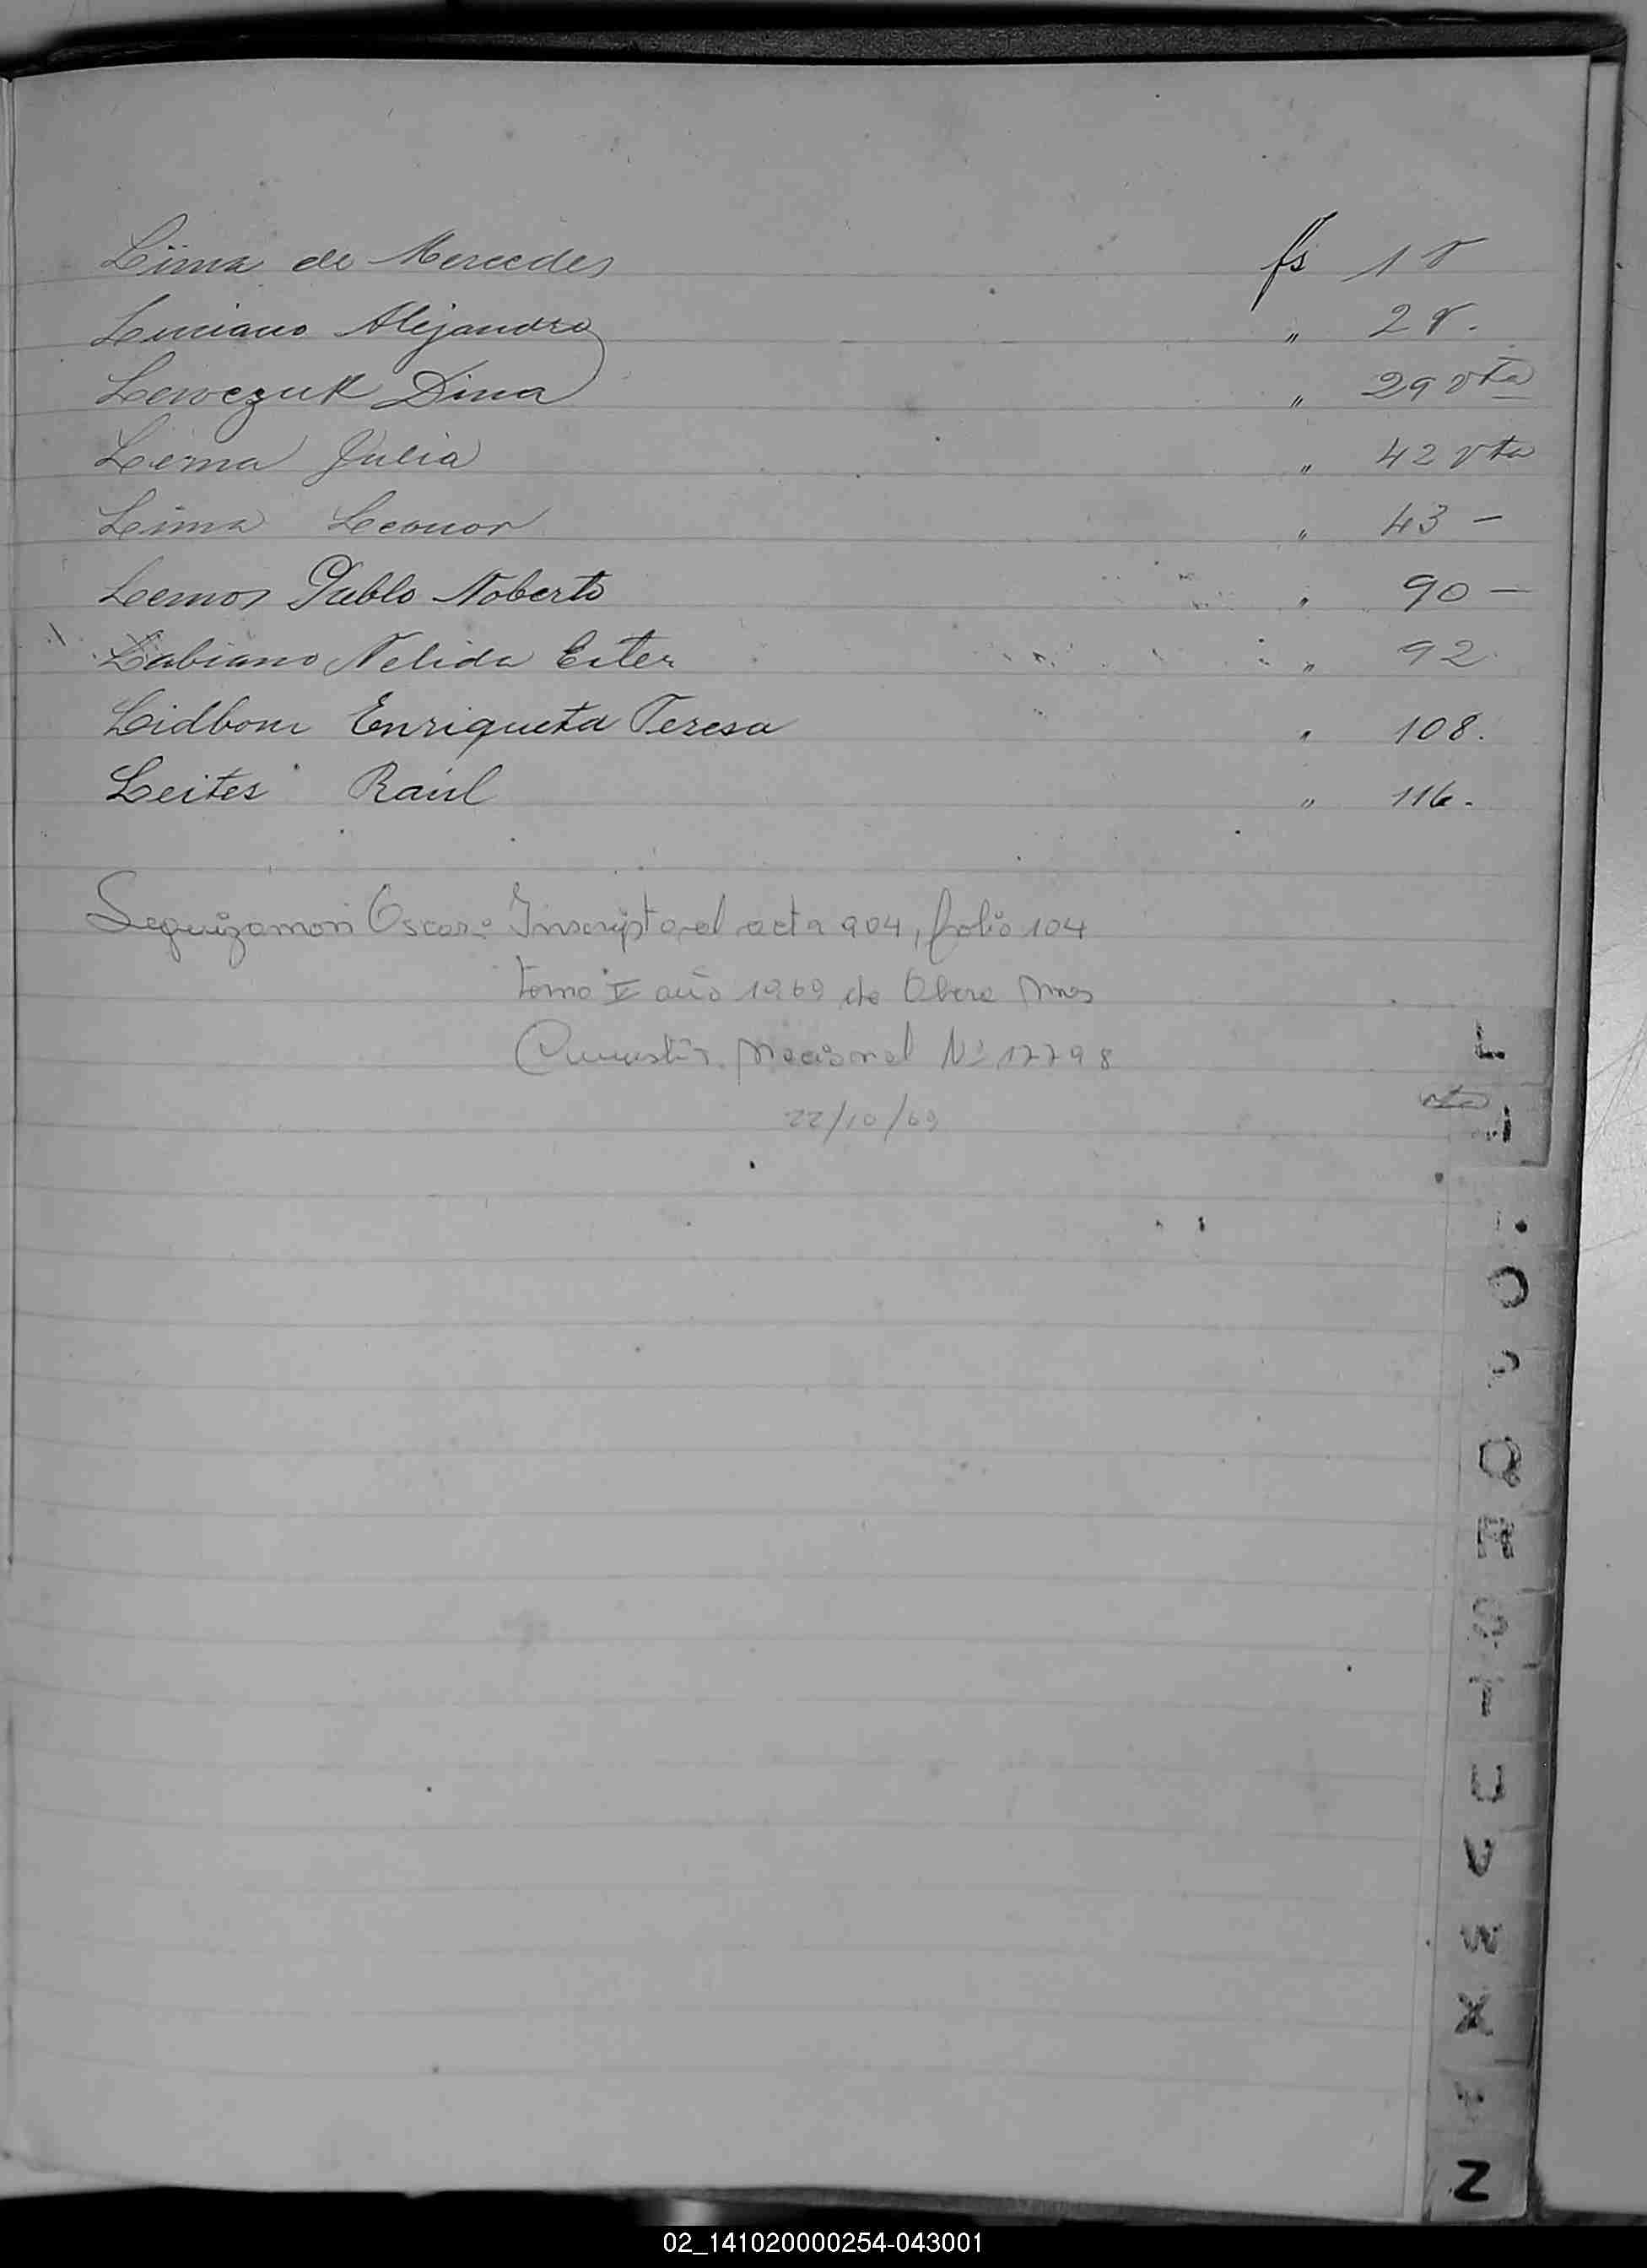 Lima de Mercedes fs 18
Luciano Alejandro " 28.
Lewczuk Dina " 29 vta
Lema Julia " 42 vta
Lima Leonor " 43 —
Lemos Pablo Noberto " 90 —
Labiano Nelida Ester " 92
Lidbom Enriqueta Teresa " 108.
Leites Raúl " 116.
Leguizamon Oscar: Inscripto al acta 904, folio 104
tomo V año 1969 de Obera Mnes
Nacional Nº 17798
22/10/69
L
vta
O
Q
R
S
T
U
V
W
X
Z
02_141020000254-043001